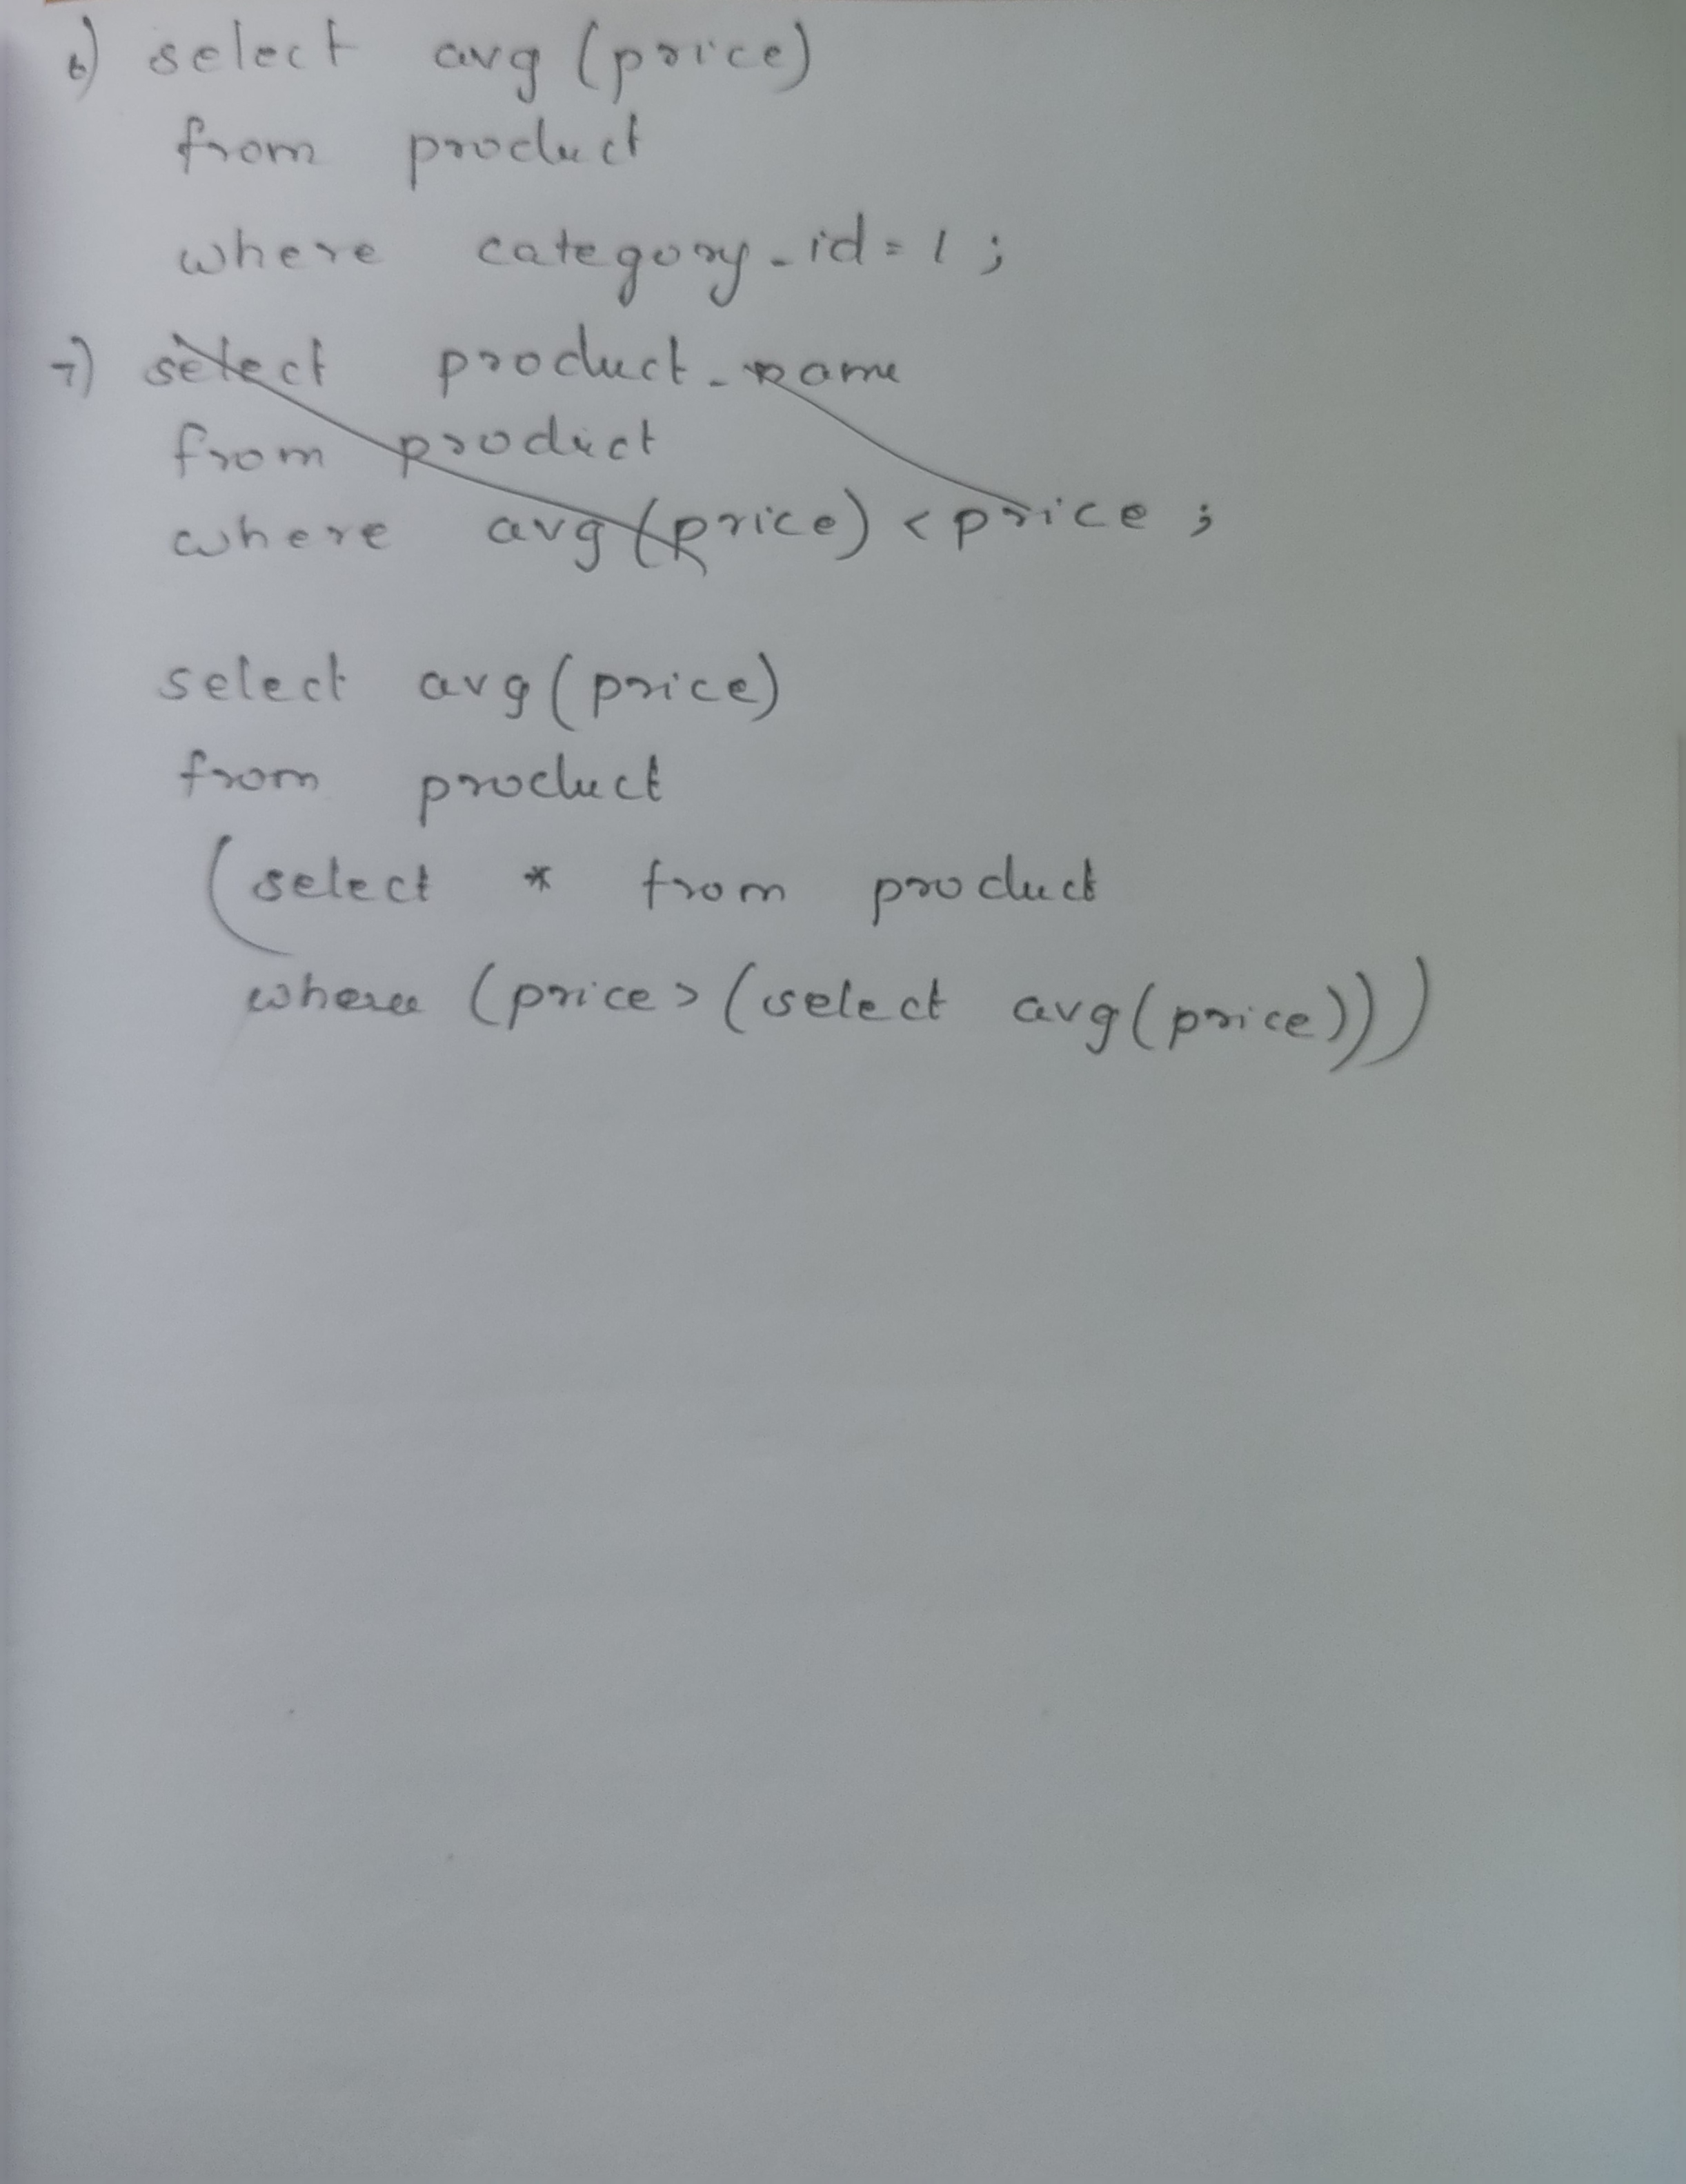 6) select avg (price)
from product
where category_id = 1 ;
7) select product_name
from product
where avg (price) < price ;
select avg (price)
from product
(select * from product
where (price > (select avg (price)))